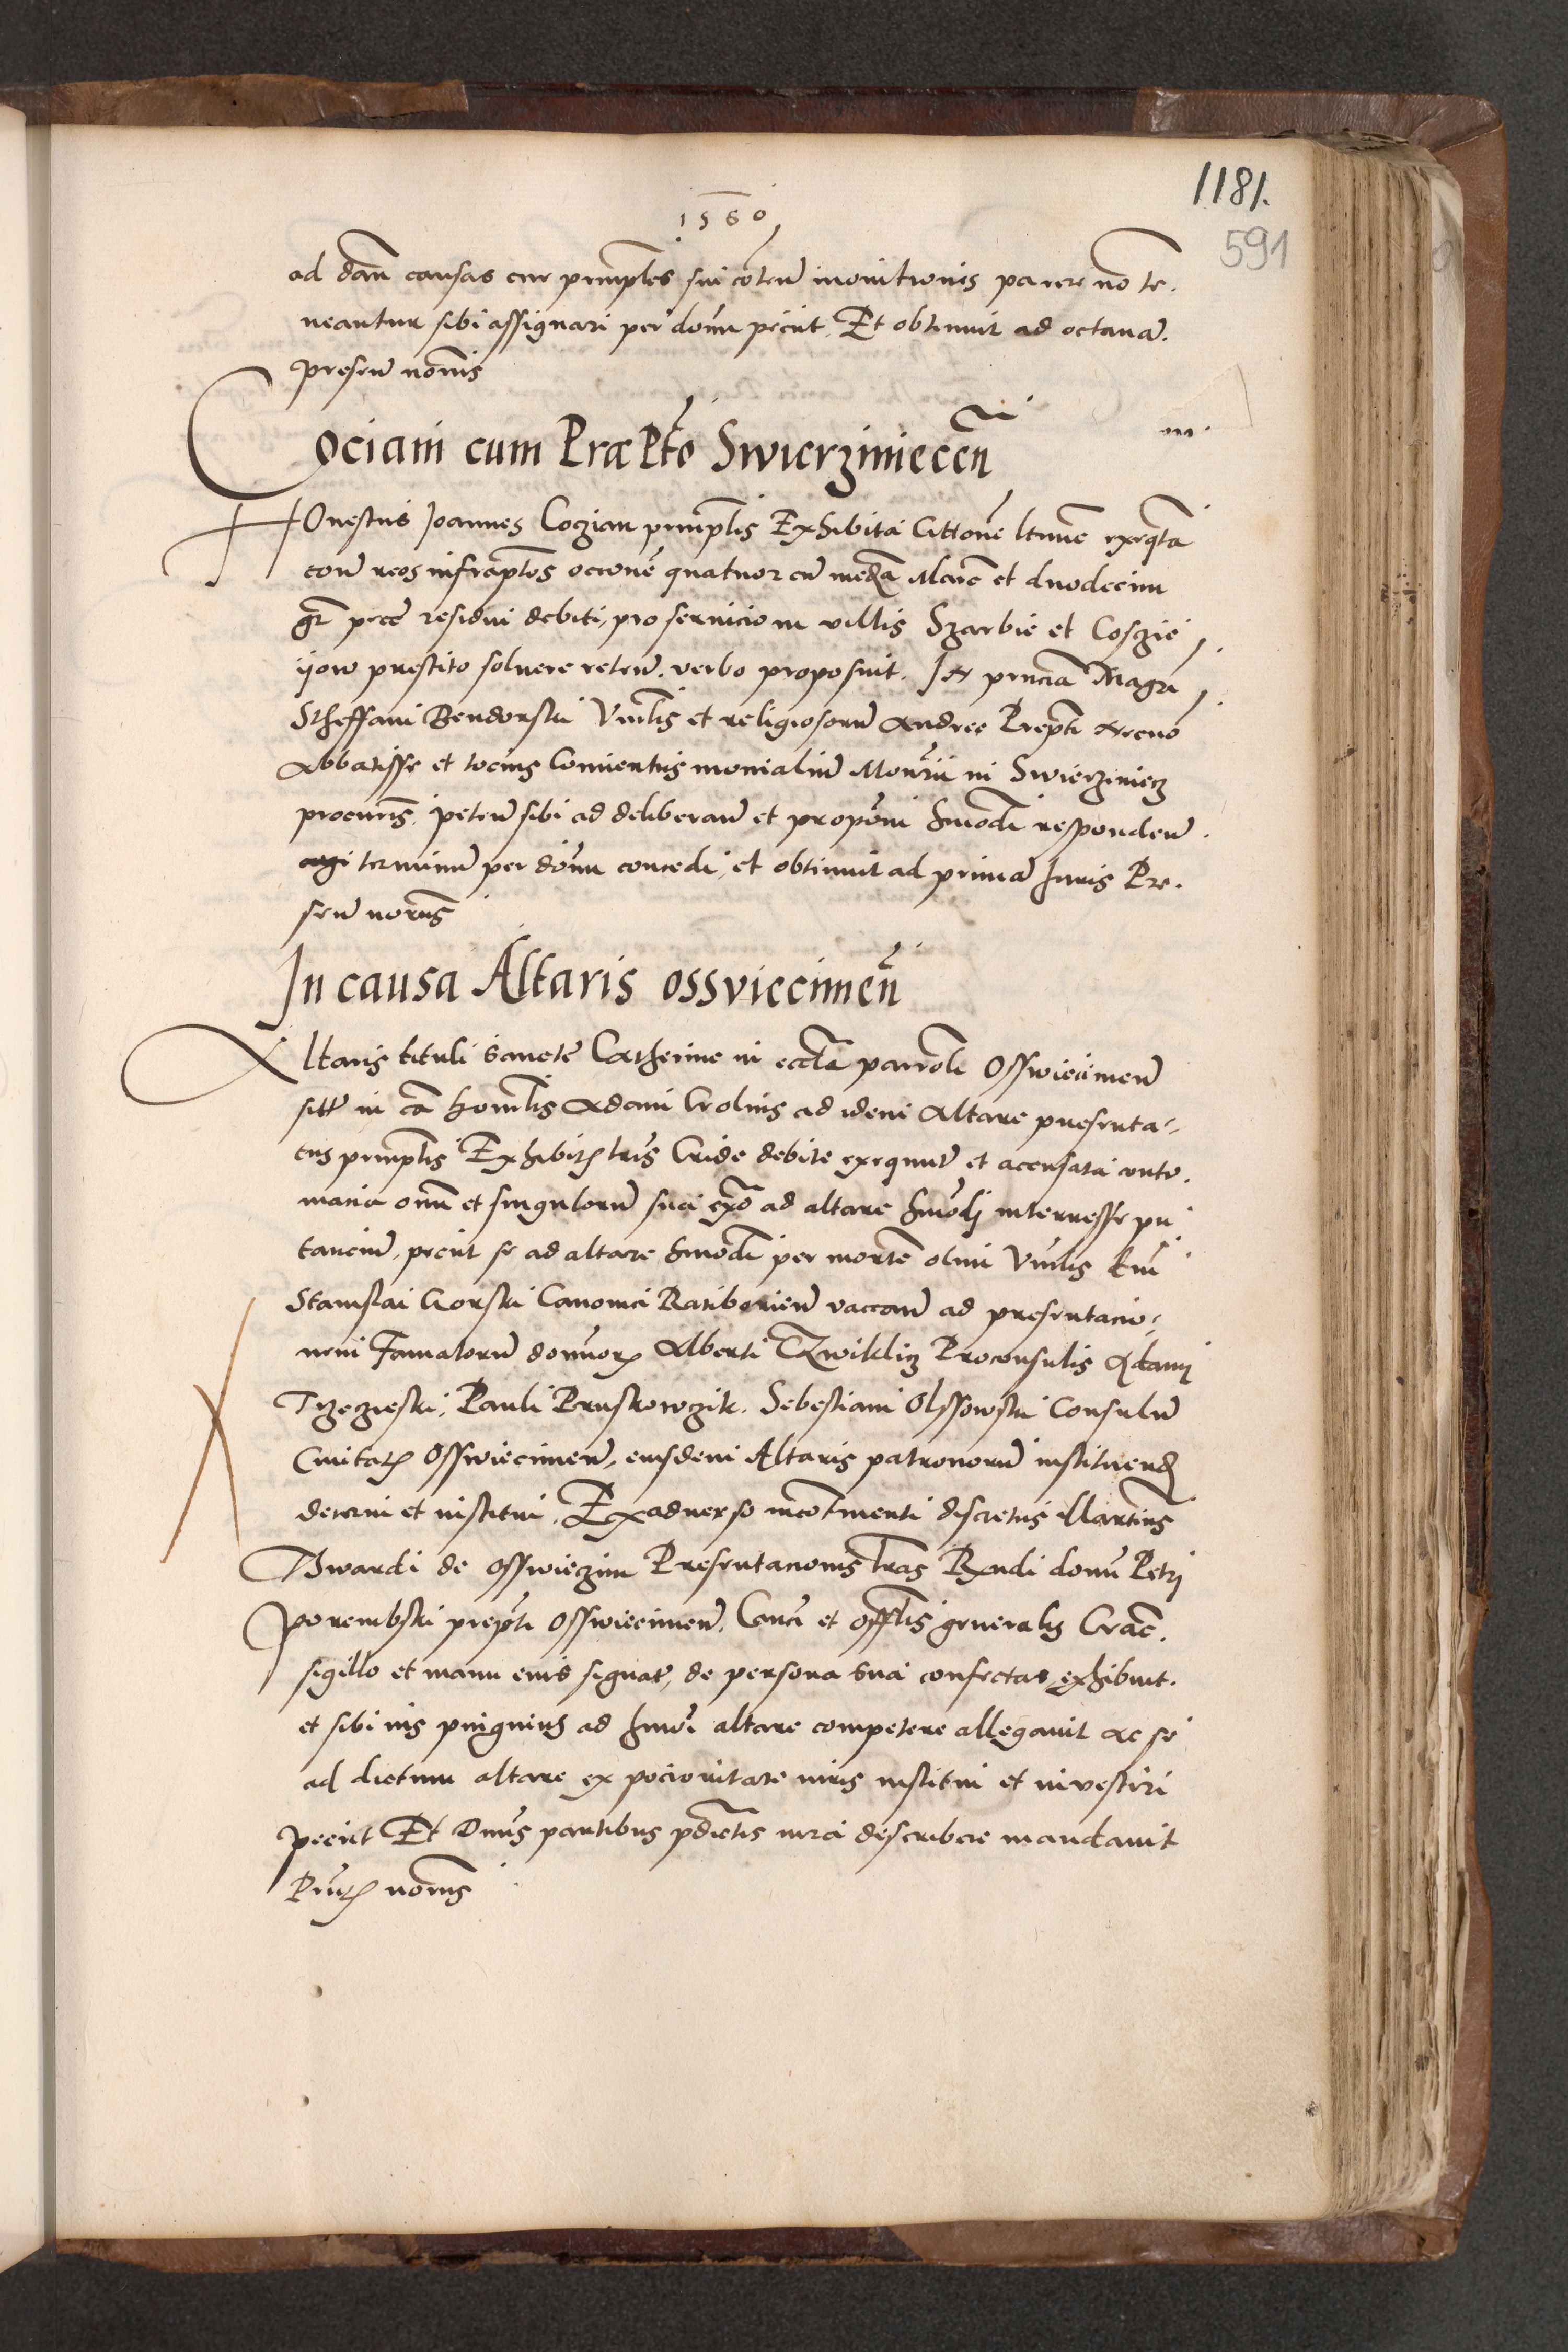 1181.
591
1560
ad dan̄ causas cur prinp̄les sui cōten̄ monitionis parere nō te.
neantur sibi assignari per donū petiit. Et obtinuit ad octauā.
presen̄ nōis
Cociani cum Præpt̄o Swierziniecen̄
m.
HOnestus Joannes Cozian prinp̄lis Exhibita Citt̄one exeq̄ta
con̄ reos infrap̄tos occ̄one quatuor cū media Marc̄ et duodecim
gr̄ pec̄e residui debiti, pro seruicio in villis Szarbie et Cosgie
ijow prestito soluere reten̄. verbo proposuit. In pn̄cia Magri
Stheffani Bendorski Vn̄lis et religiosorū Andree Prep̄ti
Abbatisse et tocius Conuentus monialiū Mon̄rii in Swierziniecz
procur̄is. peten̄ sibi ad deliberan̄ et propōni hm̄oi responden̄.
terminū per donū concedi, et obtinuit ad primā Juris Pre.
sen̄ nōis
In causa Altaris ossviecimen̄
Altaris tituli Sancte Catherine in eccl̄a parroli Osswiecimen̄
sitt̄ in cā honn̄lis Adam Crolius ad idem Altare presenta-
tus prinp̄lis Exhibitis lr̄is Cride debite exequut̄ et accusata contu.
macia oīm et singulorū sua ex̄o ad altare hm̄oi interresse pu
tanciū, peciit se ad altare hm̄oi per mortē olim Vn̄lis
Stanislai Gorski Canonici Ratiborien̄ vaccan̄ ad presentacio-
nem Famatorū donorum Alberti Czwiklicz Proconsulis Adami
Trzeczieski, Pauli Pruskowczik. Sebestiani Olssowski Consulū
Ciuitatis Osswiecimen̄, eiusdem Altaris patronorū instituend
decerni et institui. Exaduerso incōtinenti discretus Martinus
Twardi de Osswieczim Presentacionis lr̄as Rn̄di domi Petri
Porembski prep̄ti Osswiecimen̄. Can̄ci et offl̄is generalis Crac̄.
sigillo et manu eius signat̄, de persona sua confectas exhibuit.
et sibi ius pinguius ad hm̄oi altare competere allegauit ac se
ad dictum altare ex pocioritate iuris institui et inuestiri
peciit Et Dnūs partibus p̄dictis iura describere mandauit
Prn̄tis nōis